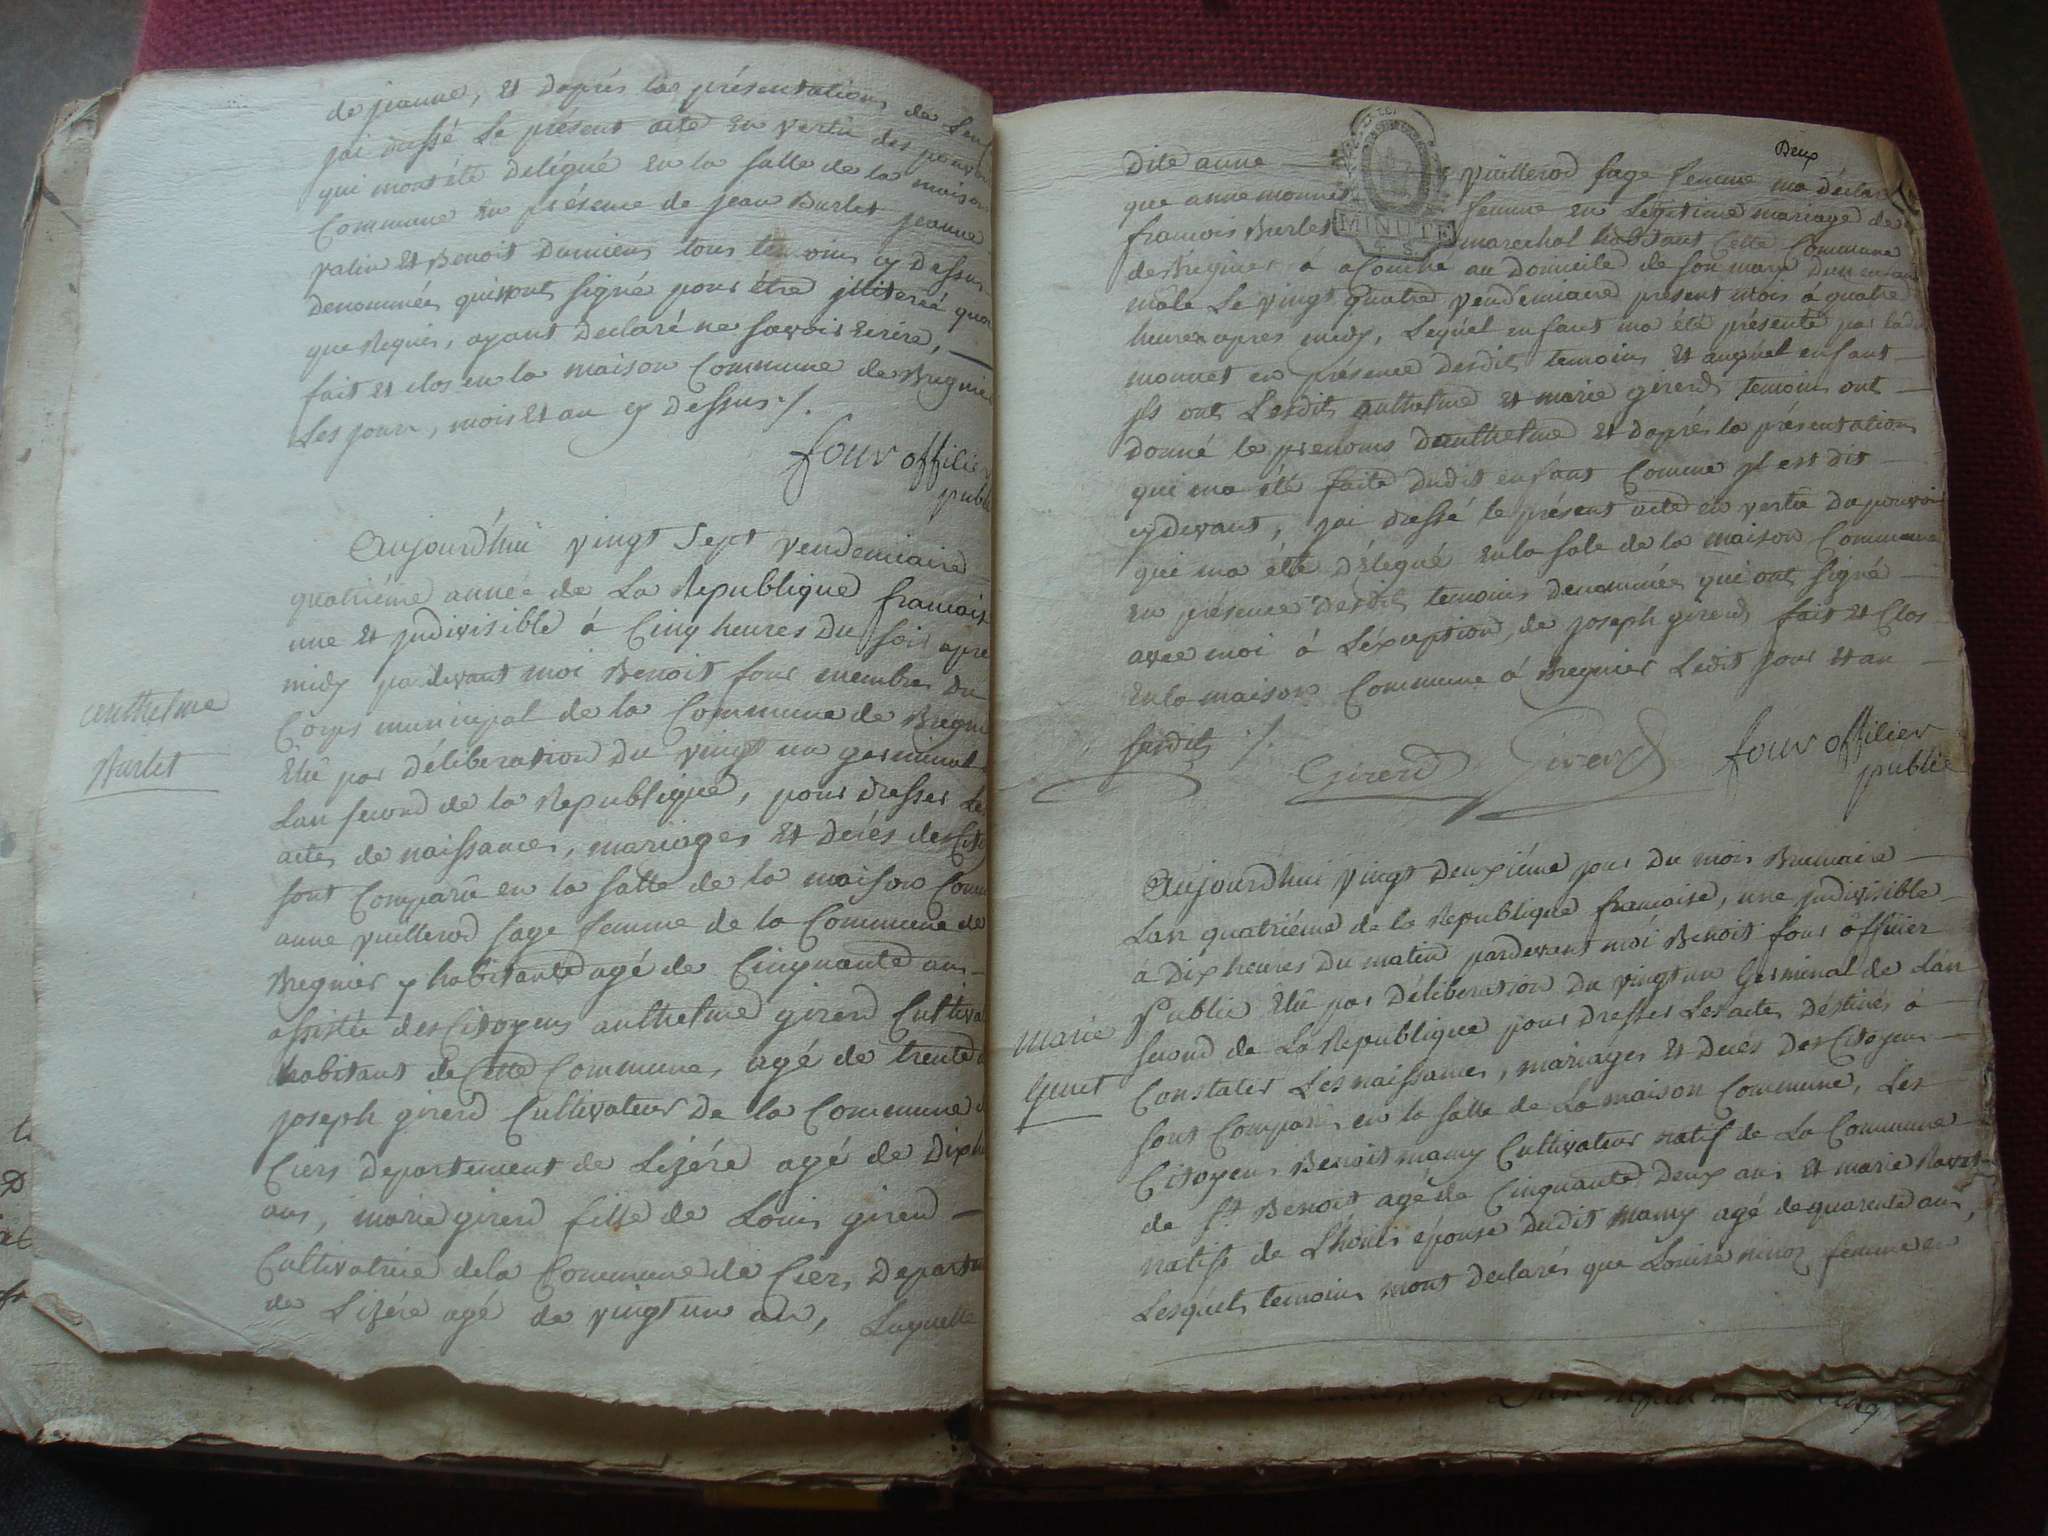 de jeanne, et daprés la présentation de
jai dressé le présent acte en vertu des
qui mont été delégué en la salle de la maison
Commune en présence de jean Burlet jeanne
et Benoit Dumiens tous temoins cy dessus
denommées qui nont signé pour être illiterée quoi
que Requis, ayant declaré ne savoir écrire,
fait et clos en la maison Commune de Bregnier
Les jour, mois et an cy dessus ./.
four offilier
public
Aujourd'hui vingt sept vendemiaire
quatriéme année de La Republique francoise
une et jndivisible à Cinq heures du soir apre
midy pardevant moi Benoit four membre du
Corps municipal de la Commune de Bregnier
Elû par déliberation du vingt un germinal
Lan second de la Republique, pour dresser Les
actes de naissances, mariages et decés des Cito
sont Comparû en la salle de la maison Comm
anne vuillerod sage femme de la Commune de
Bregnier y habitante agé de Cinquante ans
assistée des Citoyens anthelme girerd Cultiva
habitant de Cette Commune, agé de trente
joseph girerd Cultivateur de la Commune
Ciers departement de Lizére agé de Dix
ans, marie girerd fille de Louis girerd
Cultivatrice de la Commune de Ciers, Depart
de Lizére agé de vingt un an, Laquelle
anthelme
Burlet
Deux
MINUTE
4. S.
Dite anne vuillerod sage femme ma déclaré
que anne monnet femme en Legitime mariage de
francois Burlet marechal habitant Cette Commune
de Bregnier à acouché au domicile de son mary dun enfant
mâle Le vingt quatre vendemiaire présent mois à quatre
heures apres midy, Lequel enfant ma été présenté par
monnet en présence desdits temoins et auquel enfant
jls ont Lesdits anthelme et marie girerd temoins ont
donné le prenoms danthelme et daprés la présentation
qui ma été faite dudit enfant Comme jl est dit
cydevant, jai dressé le présent acte en vertu du pouvoir
qui ma été délegué en la sale de la maison Commune
en présence desdits temoins denommées qui ont signé
avec moi à Léxception de joseph girerd fait et Clos
en la maison Commune à Bregnier Ledit jour et an
susdits ./.
Girerd Girerd four offilier
publie
Aujourdhui vingt deuxiéme jour du mois Brumaire
Lan quatriéme de la Republique francaise, une jndivisible
à Dix heures du matin pardevant moi Benoit four officier
Public Elû par déliberation du vingt un Germinal de Lan
second de La Republique pour dresser Les actes déstinés à
Constater Les naissances, mariages et decés des Citoyens
sont Comparus en la salle de La maison Commune, Les
Citoyens Benoit mamy Cultivateur natif de La Commune
de St Benoit agé de Cinquante Deux ans et marie
natife de épouse dudit mamy agé de quarente ans,
Lesquels temoins mont declarés que Louise femme en
marie